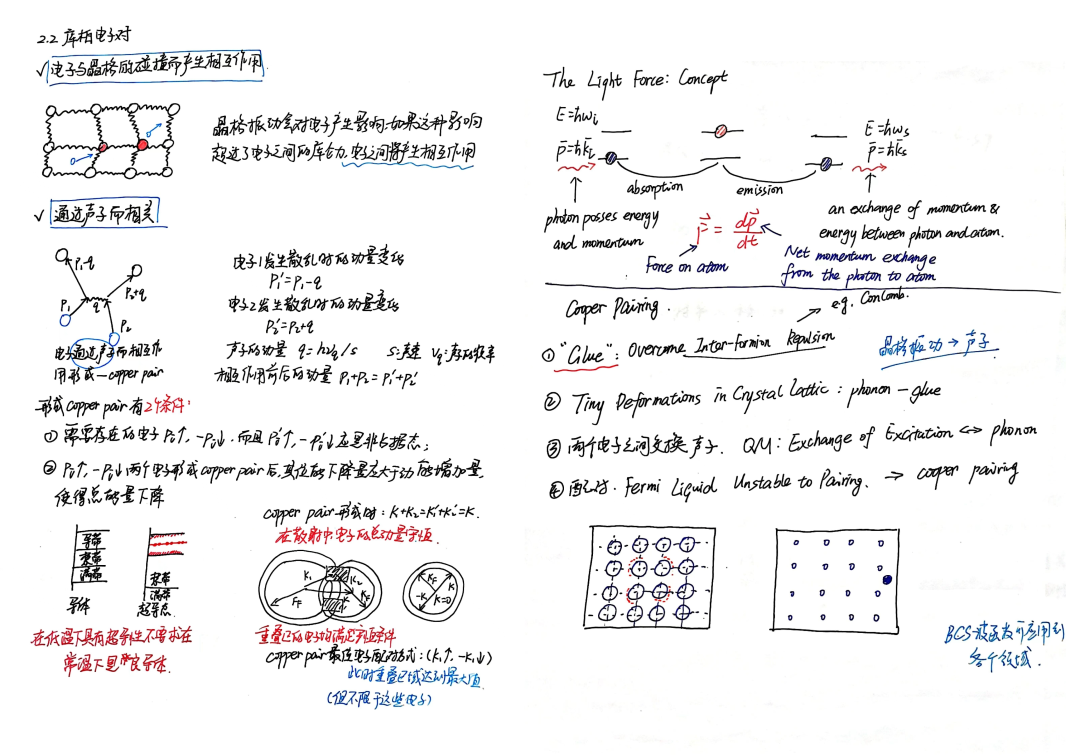 2.2 库柏电子对
√ 电子与晶格的碰撞而产生相互作用
晶格振动会对电子产生影响,如果这种影响
超过了电子之间的库仑力,电子之间将产生相互作用
√ 通过声子而相关
P₁-q
P₂+q
q
P₁
P₂
电子通过声子而相互作
用形成一copper pair
电子1发生散乱时的动量变化
P₁'=P₁-q
电子2发生散乱时的动量变化
P₂'=P₂+q
声子的动量 q=hνq/s s:声速 νq:声子的频率
相互作用前后的动量 P₁+P₂=P₁'+P₂'
形成copper pair有2个条件:
① 需要存在的电子P₁↑,-P₁↓,而且P₁'↑,-P₁'↓应是非占据态;
② P₁↑,-P₁↓两个电子形成copper pair后,其位能下降量应大于动能增加量,
使得总能量下降
copper pair形成时:K₁+K₂=K₁'+K₂'=K.
在散射中,电子的总动量守恒.
导带
禁带
满带
导体
禁带
满带
超导态
K₁
K₂
K
K_F
K_F
K
-K
K=0
在低温下具有超导性不要求在
常温下是良导体.
重叠区的电子均满足守恒条件
copper pair最佳电子配对方式:(K₁↑,-K₁↓)
此时重叠区域达到最大值
(但不限于这些电子)
The Light Force: Concept
E=ħωᵢ
p̄=ħk̄ᵢ
E=ħωs
p̄=ħk̄s
absorption
emission
photon posses energy
and momentum
F⃗ = dp⃗/dt
Force on atom
an exchange of momentum &
energy between photon and atom.
Net momentum exchange
from the photon to atom
Cooper Pairing.
e.g. Conlomb.
① "Glue": Overcome Inter-formion Repulsion
晶格振动→声子
② Tiny Deformations in Crystal Lattic : phonon-glue
③ 两个电子之间交换声子. QM: Exchange of Excitation <=> phonon
④ 配对. Fermi Liquid Unstable to Pairing. → cooper pairing
BCS被函发可应用到
各个领域.